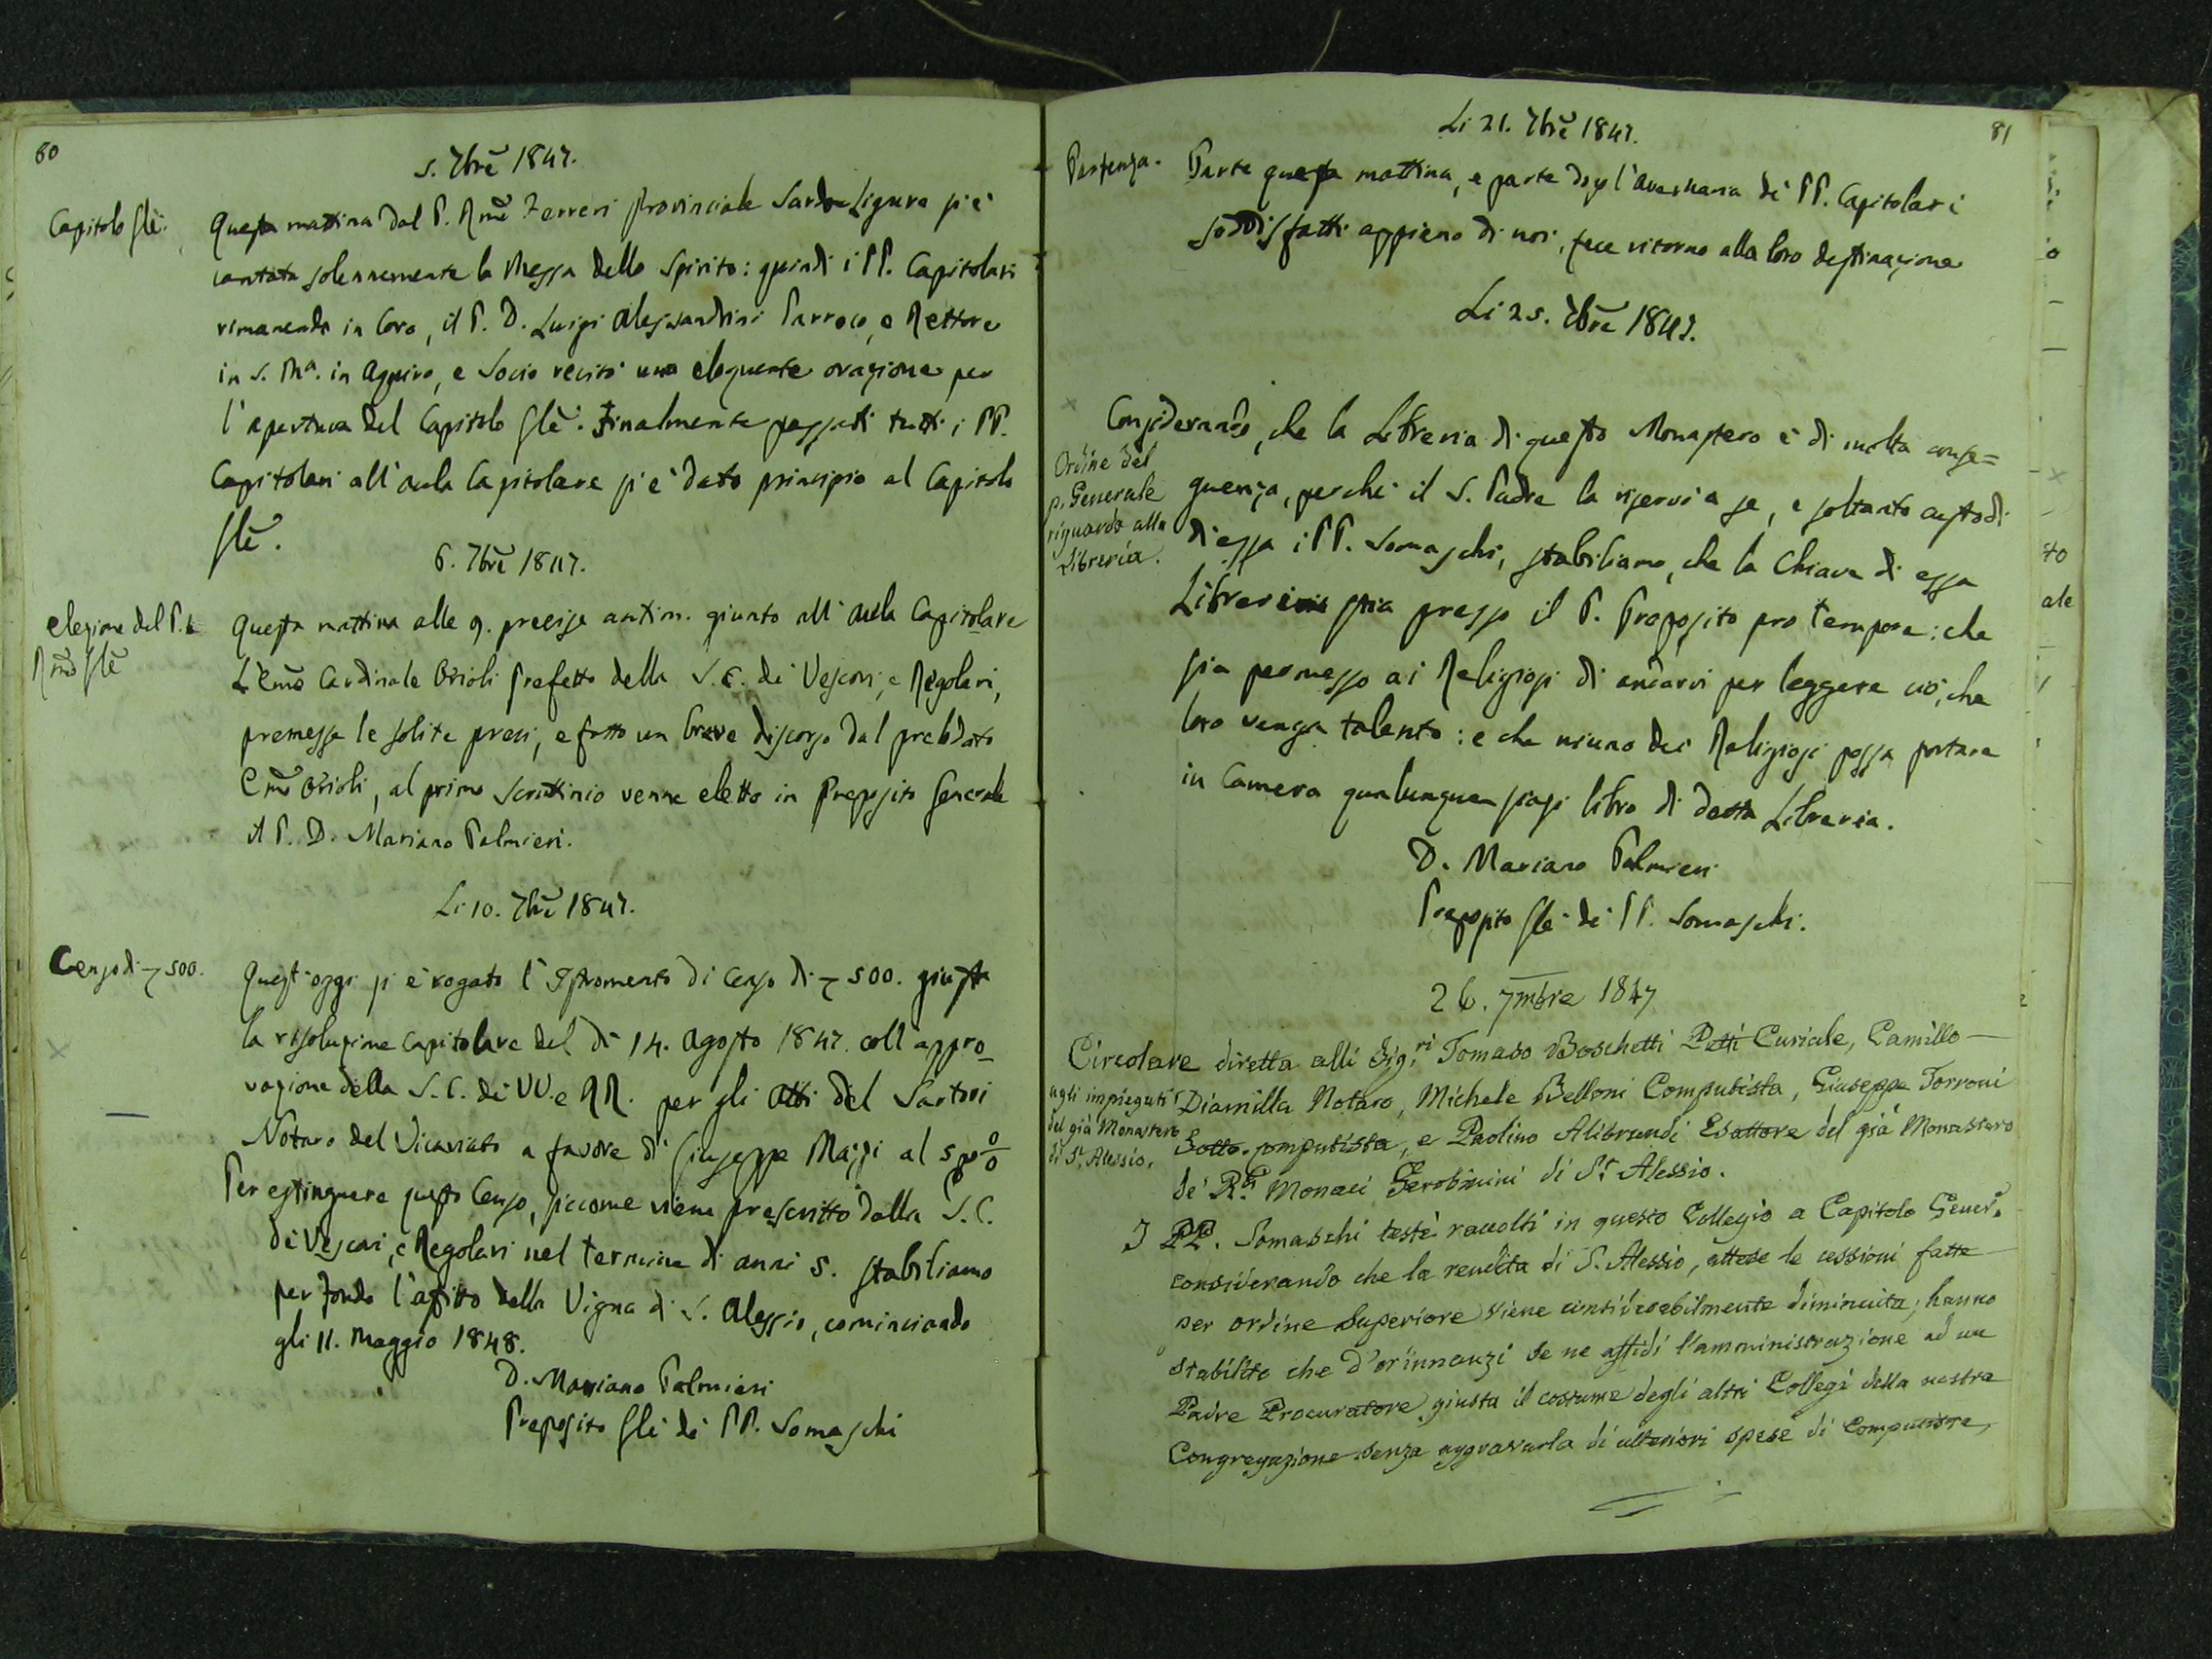 80
5. 7bre 1847.
Capitolo Gle.
Questa mattina dal P. Rmo Ferreri Provinciale Sardo Ligure si è
cantata solennemente la Messa dello Spirito: quindi i PP. Capitolari
rimanendo in Coro, il P. D. Luigi Alessandrini Parroco, e Rettore
in S. Ma. in Aquiro, e Socio recitò una eloquente orazione per
l'apertura del Capitolo Gle. Finalmente passati tutti i PP.
Capitolari all'aula Capitolare si è dato principio al Capitolo
Gle.
6. 7bre 1847.
elezione del P.
Rmo Gle
Questa mattina alle 9. precise antim. giunto all'aula Capitolare
L'Emo Cardinale Orioli Prefetto della S. C. de' Vescovi, e Regolari,
premesse le solite preci, e fatto un breve discorso dal prelodato
Emo Orioli, al primo Scrutinio venne eletto in Preposito Generale
il P. D. Mariano Palmieri.
Li 10. 7bre 1847.
Censo di 500.
Quest'oggi si è rogato l'Istromento di Censo di 500. giusta
la risoluzione Capitolare del dì 14. Agosto 1847. coll'appro_
vazione della S. C. de' VV. e RR. per gli Atti del Sartori
Notaro del Vicariato a favore di Giuseppe Massi al 5 p %
Per estinguere questo Censo, siccome viene prescritto dalla S. C.
de' Vescovi, e Regolari nel termine di anni 5. stabiliamo
per fondo l'afitto della Vigna di S. Alessio, cominciando
gli 11. Maggio 1848.
D. Mariano Palmieri
Preposito Gle de' PP. Somaschi
81
Li 21. 7bre 1847.
Partenza.
Parte questa mattina, e parte dopo l'Avemaria de' PP. Capitolari
soddisfatti appieno di noi, fece ritorno alla loro destinazione
Li 25. 7bre 1847.
Considerando, che la Libreria di questo Monastero è di molta conse=
Ordine del
p. Generale
riguardo alla
Libreria.
guenza, perchè il S. Padre la riservò a se, e soltanto custodi
d'essa i PP. Somaschi, stabiliamo, che la Chiave di essa
Libreria stia presso il P. Preposito pro tempore: che
sia permesso ai Religiosi di andarvi per leggere ciò, che
loro venga talento: e che niuno dei Religiosi possa portare
in Camera qualunque siasi libro di detta Libreria.
D. Mariano Palmieri
Preposito Gle de' PP. Somaschi.
26. 7mbre 1847
Circolare
agli impiegati
del già Monastero
di St. Alessio.
diretta alli Sig.ri Tomaso Boschetti Patti Curiale, Camillo
Diamilla Notaro, Michele Belloni Computista, Giuseppe Torroni
Sotto-computista, e Paolino Alibrandi Esattore del già Monastero
de' RR. Monaci Gerolimini di St. Alessio.
I PP. Somaschi testè raccolti in questo Collegio a Capitolo Gener.
considerando che la rendita di S. Alessio, attese le cessioni fatte
per ordine Superiore viene considerabilmente diminuita, hanno
stabilito che d'orinnanzi se ne affidi l'amministrazione ad un
Padre Procuratore giusta il costume degli altri Collegi della nostra
Congregazione senza aggravarla di ulteriori spese di Computista,
to
ale